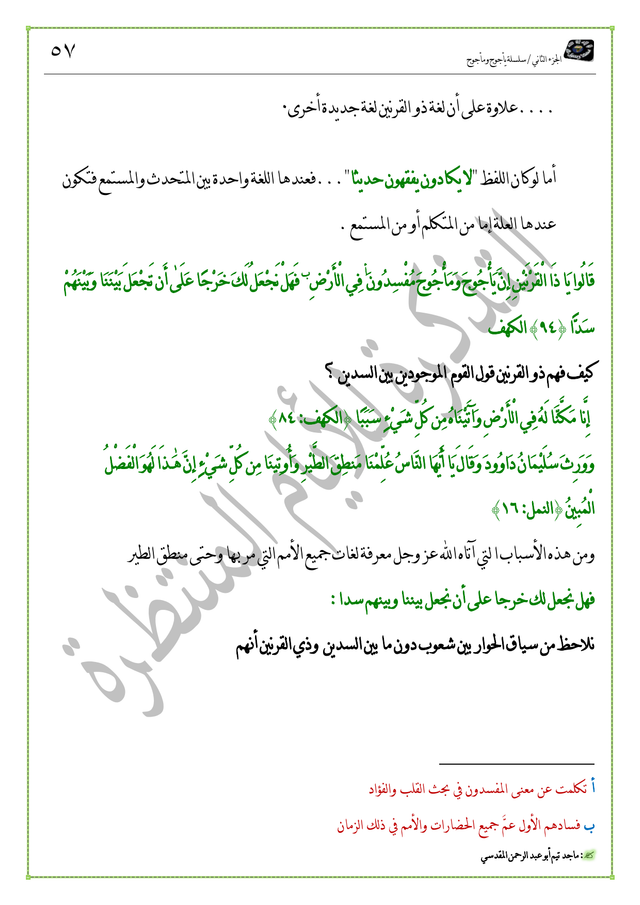 الجزء الثاني / سلسلة يأجوج ومأجوج
٥٧
.... علاوة على أن لغة ذو القرنين لغة جديدة أخرى.
أما لو كان اللفظ "لا يكادون يفقهون حديثا" ... فعندها اللغة واحدة بين المتحدث والمستمع فتكون
عندها العلة إما من المتكلم أو من المستمع .
قَالُوا يَا ذَا الْقَرْنَيْنِ إِنَّ يَأْجُوجَ وَمَأْجُوجَ مُفْسِدُونَ أ فِي الْأَرْضِ ب فَهَلْ نَجْعَلُ لَكَ خَرْجًا عَلَىٰ أَن تَجْعَلَ بَيْنَنَا وَبَيْنَهُمْ
سَدًّا ﴿٩٤﴾ الكهف
كيف فهم ذو القرنين قول القوم الموجودين بين السدين ؟
إِنَّا مَكَّنَّا لَهُ فِي الْأَرْضِ وَآتَيْنَاهُ مِن كُلِّ شَيْءٍ سَبَبًا ﴿الكهف: ٨٤﴾
وَوَرِثَ سُلَيْمَانُ دَاوُودَ وَقَالَ يَا أَيُّهَا النَّاسُ عُلِّمْنَا مَنطِقَ الطَّيْرِ وَأُوتِينَا مِن كُلِّ شَيْءٍ إِنَّ هَٰذَا لَهُوَ الْفَضْلُ
الْمُبِينُ ﴿النمل: ١٦﴾
ومن هذه الأسباب التي آتاه الله عز وجل معرفة لغات جميع الأمم التي مر بها وحتى منطق الطير
فهل نجعل لك خرجا على أن نجعل بيننا وبينهم سدا :
نلاحظ من سياق الحوار بين شعوب دون ما بين السدين وذي القرنين أنهم
التذكرة للأيام المنتظرة
أ تكلمت عن معنى المفسدون في بحث القلب والفؤاد
ب فسادهم الأول عمَّ جميع الحضارات والأمم في ذلك الزمان
: ماجد تيم أبو عبد الرحمن المقدسي